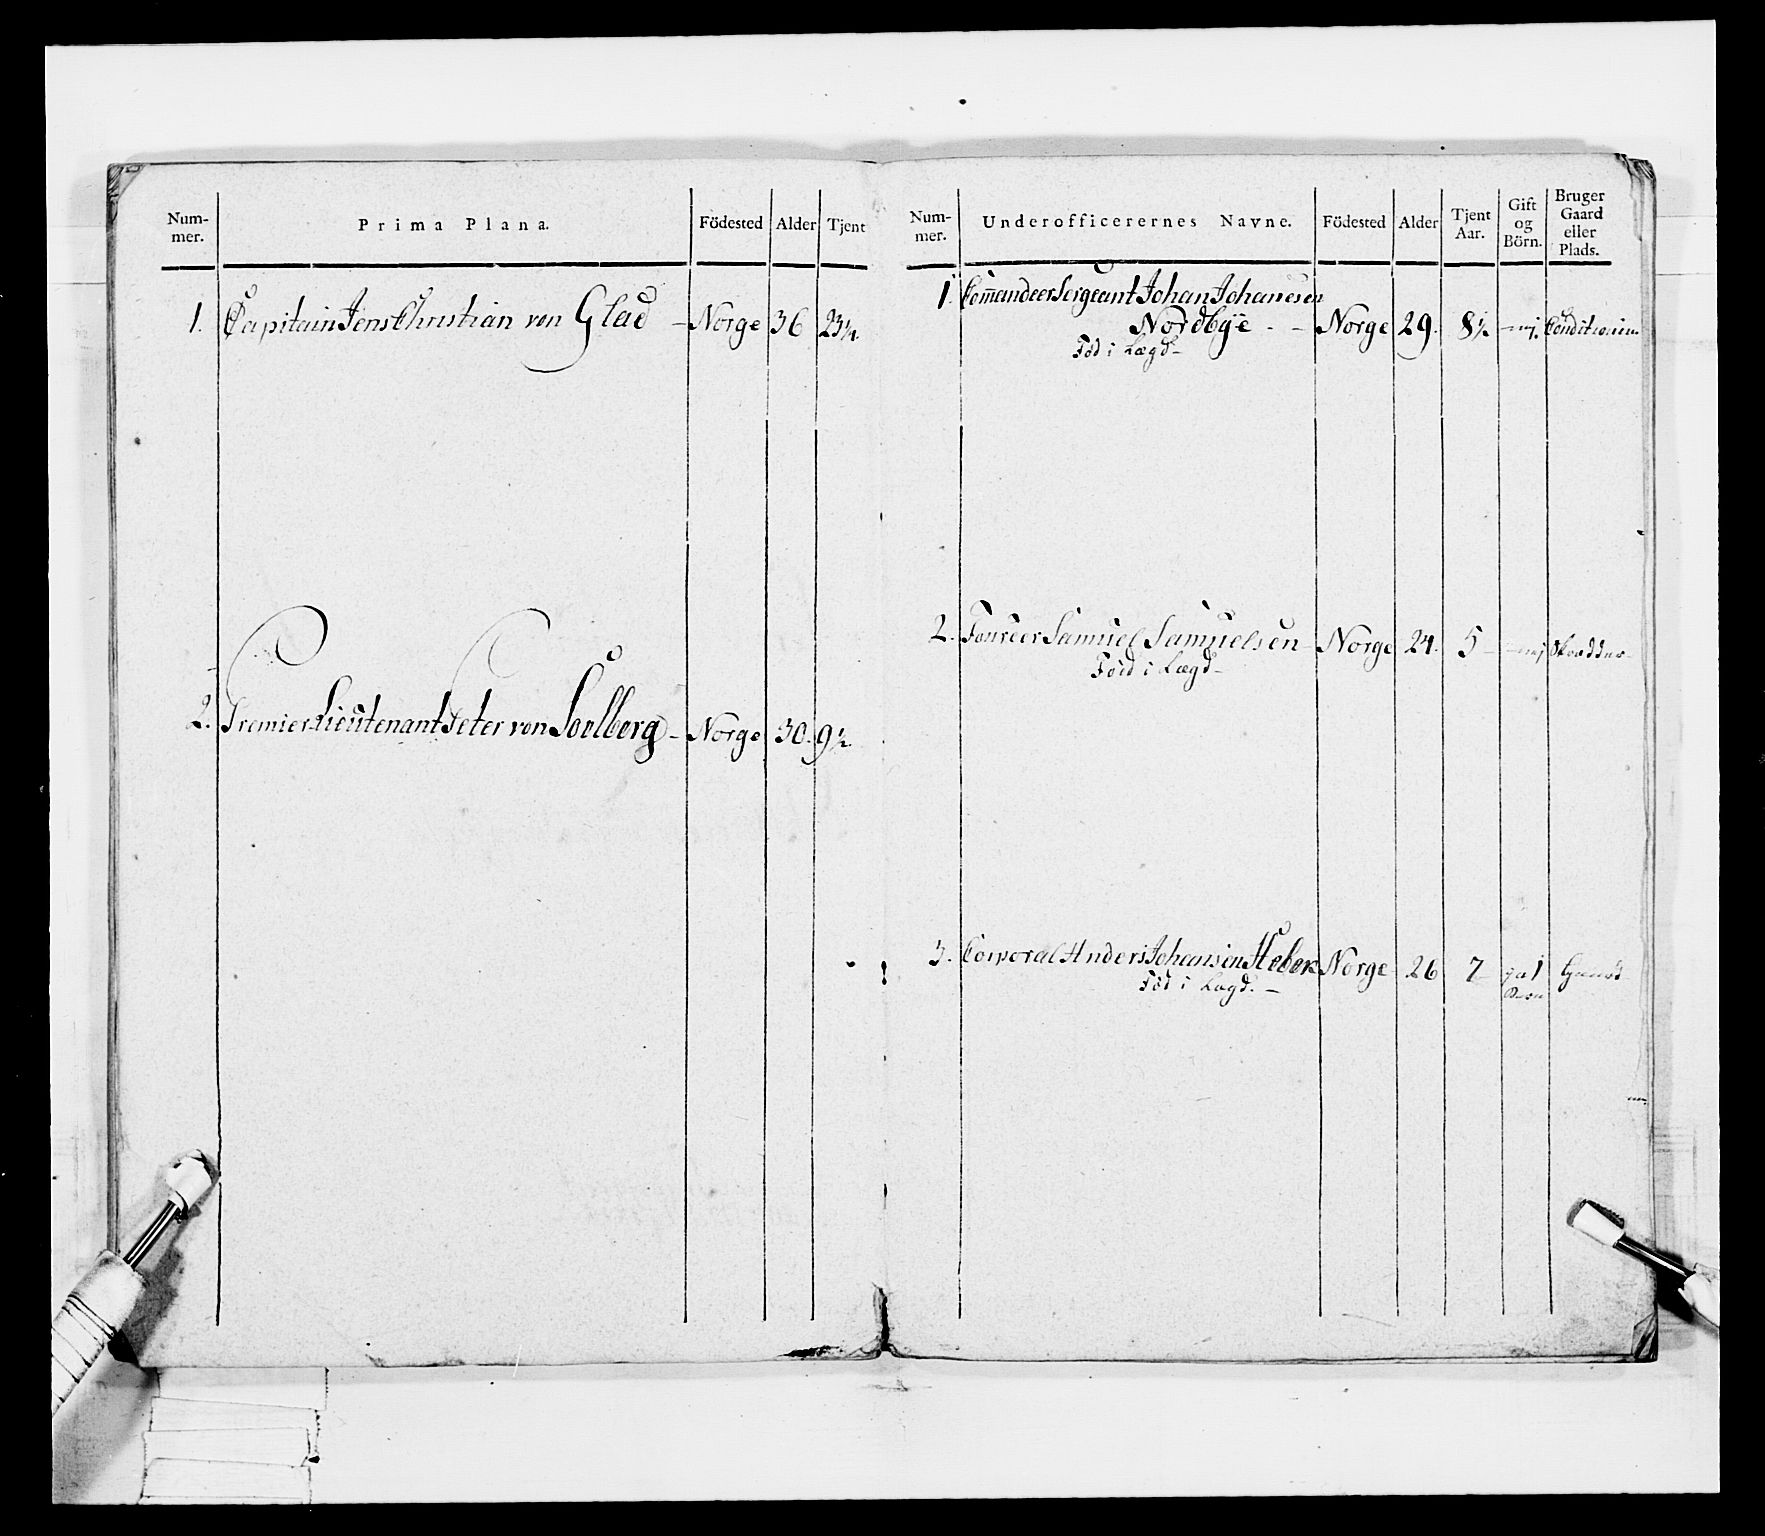 Num-
mer.
Prima Plana.
Födested
Alder
Tjent
1. Capitain Jens Christian von Glad – Norge 36 23¼.
2. Premier Lieutenant Peter von Soelberg – Norge 30. 9½.
Num-
mer.
Underofficerernes Navne.
Födested
Alder
Tjent
Aar.
Gift
og
Börn.
Bruger
Gaard
eller
Plads.
1. Commandeer Sergeant Johan Johanesen
Nordbÿe - – Norge 29. 8½ – nej.
Föd i Lægd –
2. Foureer Samuel Samuelsen Norge 24. 5 – – nej Skrædder –
Föd i Lægd –
3. Corporal Anders Johansen Norge 26 7 ja 1
Föd i Lægd. –
Barn